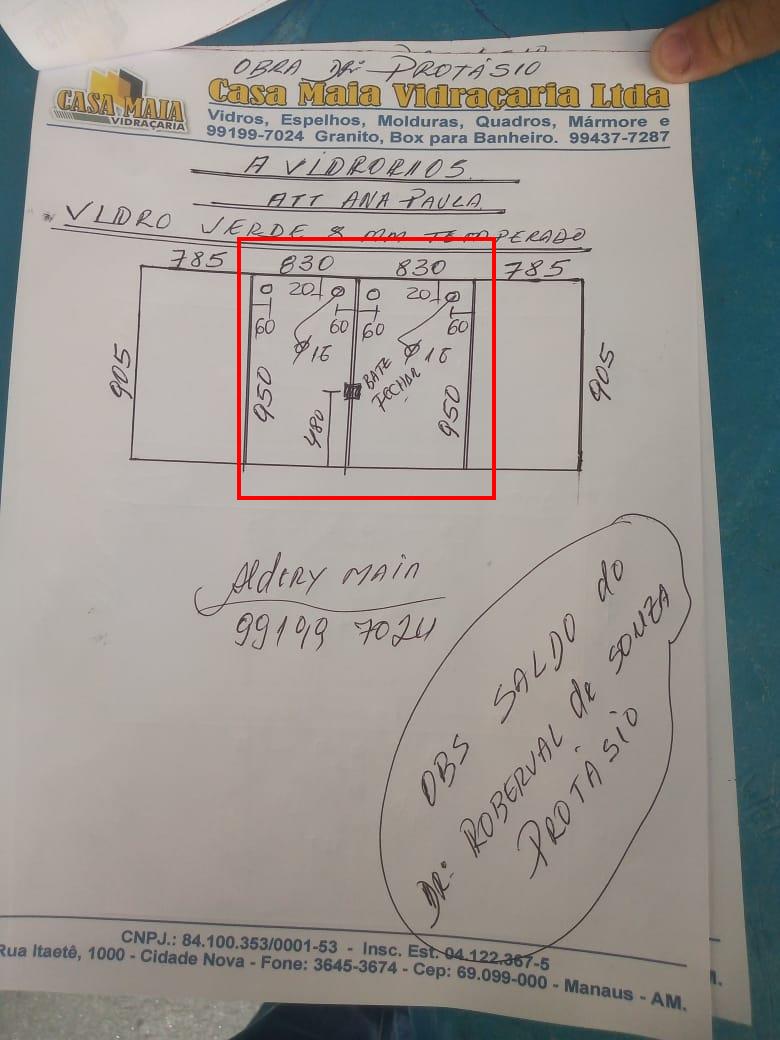 OBRA DR: PROTÁSIO
CASA MAIA
VIDRAÇARIA
Casa Maia Vidraçaria Ltda
Vidros, Espelhos, Molduras, Quadros, Mármore e
99199-7024 Granito, Box para Banheiro. 99437-7287
A VIDRORIOS
ATT ANA PAULA
VIDRO VERDE 8 MM TEMPERADO
785 830 830 785
20 20
60 60 60 60
16 16
905 950 480 BATE FECHAR 950 905
Aldery Maia
99199 7024
OBS SALDO do
DR: ROBERVAL de SOUZA
PROTÁSIO
CNPJ.: 84.100.353/0001-53 - Insc. Est. 04.122.367-5
Rua Itaetê, 1000 - Cidade Nova - Fone: 3645-3674 - Cep: 69.099-000 - Manaus - AM.
M.